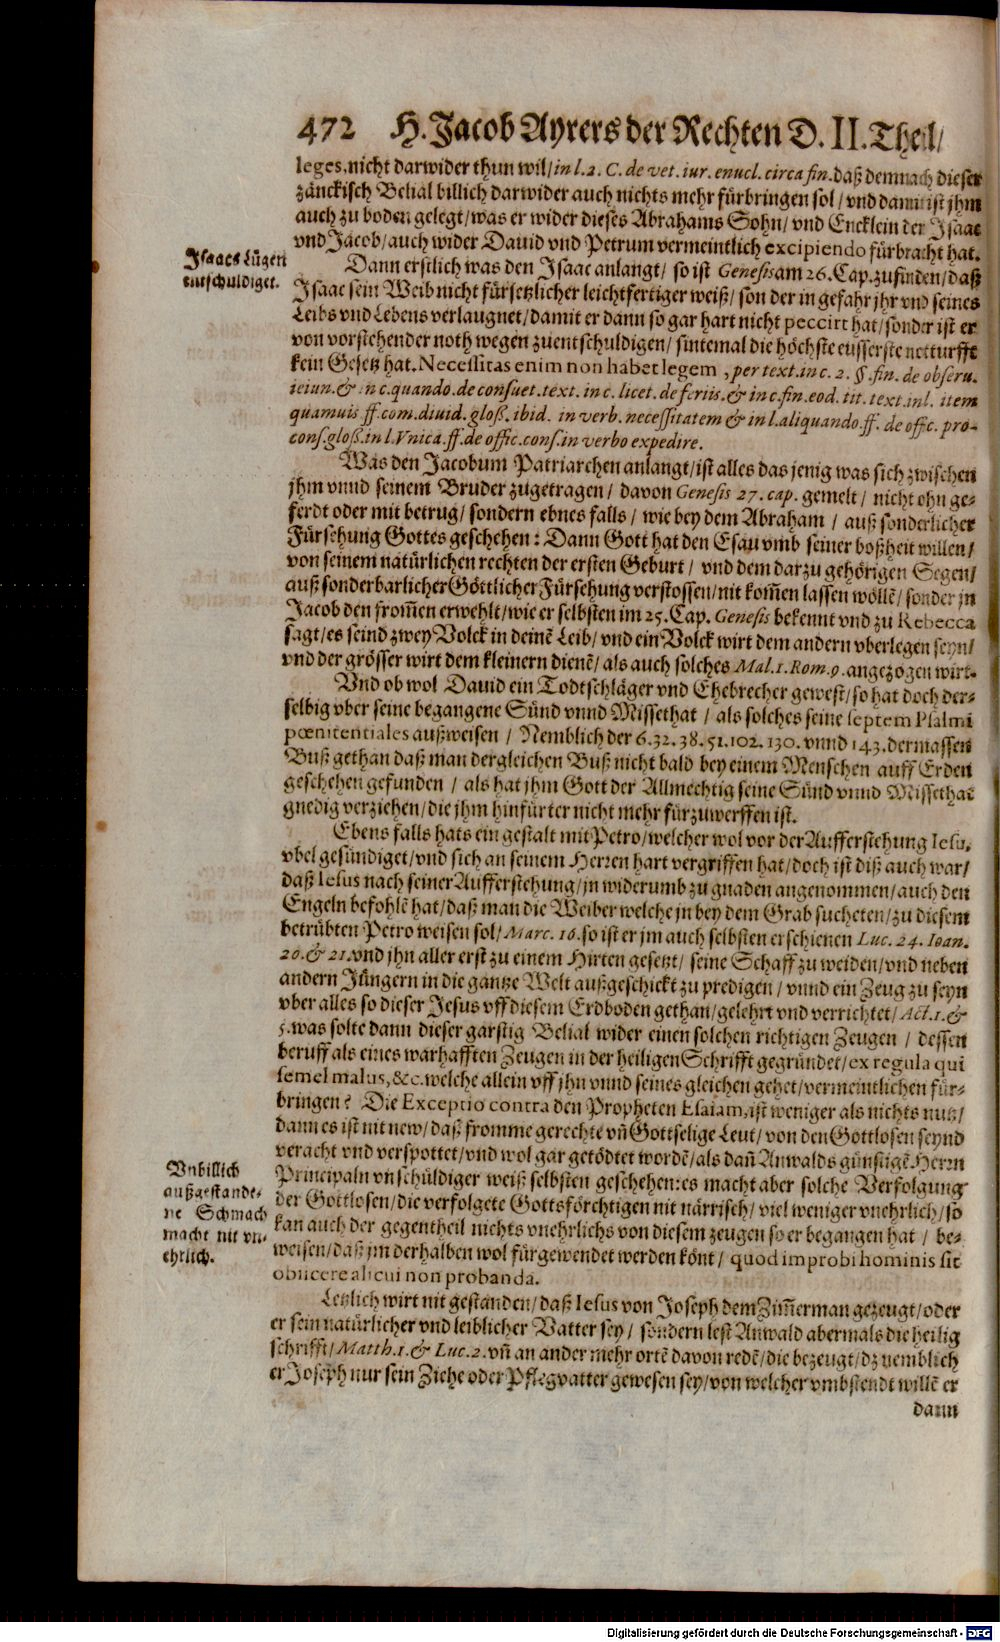 472 H. Jacob Ayrers der Rechten D. II. Theil/
leges, nicht darwider thun wil/ in l. 2. C. de vet. iur. enucl. circa fin. daß demnach dieser
zänckisch Belial billich darwider auch nichts mehr fürbringen sol/ vnd damit ist jhm
auch zu boden gelegt/ was er wider dieses Abrahams Sohn/ vnd Encklein der Isaac
vnd Jacob/ auch wider Dauid vnd Petrum vermeintlich excipiendo fürbracht hat.
Isaacs Lügen
entschuldiget.
Dann erstlich was den Isaac anlangt/ so ist Genesis am 26. Cap. zufinden/ daß
Isaac sein Weib nicht fürsetzlicher leichtfertiger weiß/ son der in gefahr jhr vnd seines
Leibs vnd Lebens verlaugnet/ damit er dann so gar hart nicht peccirt hat/ sonder ist er
von vorstehender noth wegen zuentschuldigen/ sintemal die höchste eusserste notturfft
kein Gesetz hat. Necessitas enim non habet legem, per text. in c. 2. §. fin. de obseru.
ieiun. & in c. quando. de consuet. text. in c. licet. de feriis. & in c. fin. eod. tit. text. in l. item
quamuis. ff. com. diuid. gloß. ibid. in verb. necessitatem & in l. aliquando. ff. de offic. pro-
cons. gloß. in l. Vnica. ff. de offic. cons. in verbo expedire.
Was den Jacobum Patriarchen anlangt/ ist alles das jenig was sich zwischen
jhm vnnd seinem Bruder zugetragen/ davon Genesis 27. cap. gemelt/ nicht ohn ge-
ferdt oder mit betrug/ sondern ebnes falls/ wie bey dem Abraham/ auß sonderlicher
Fürsehung Gottes geschehen: Dann Gott hat den Esau vmb seiner boßheit willen/
von seinem natürlichen rechten der ersten Geburt/ vnd dem darzu gehörigen Segen/
auß sonderbarlicher Göttlicher Fürsehung verstossen/ nit kom̃en lassen wöllẽ/ sonder jn
Jacob den from̃en erwehlt/ wie er selbsten im 25. Cap. Genesis bekennt vnd zu Rebecca
sagt/ es seind zwey Volck in deinẽ Leib/ vnd ein Volck wirt dem andern vberlegen seyn/
vnd der grösser wirt dem kleinern dienẽ/ als auch solches Mal. 1. Rom. 9. angezogen wirt.
Vnd ob wol Dauid ein Todtschläger vnd Ehebrecher gewest/ so hat doch der-
selbig vber seine begangene Sünd vnnd Missethat/ als solches seine septem Psalmi
pœnitentiales außweisen/ Nemblich der 6. 32. 38. 51. 102. 130. vnnd 143. dermassen
Buß gethan daß man dergleichen Buß nicht bald bey einem Menschen auff Erden
geschehen gefunden/ als hat jhm Gott der Allmechtig seine Sünd vnnd Missethat
gnedig verziehen/ die jhm hinfürter nicht mehr fürzuwerffen ist.
Ebens falls hats ein gestalt mit Petro/ welcher wol vor der Aufferstehung Iesu,
vbel gesündiget/ vnd sich an seinem Herren hart vergriffen hat/ doch ist diß auch war/
daß Iesus nach seiner Aufferstehung/ jn widerumb zu gnaden angenommen/ auch den
Engeln befohlẽ hat/ daß man die Weiber welche jn bey dem Grab sucheten/ zu diesem
betrübten Petro weisen sol/ Marc. 16. so ist er jm auch selbsten erschienen Luc. 24. Ioan.
20. & 21. vnd jhn aller erst zu einem Hirten gesetzt/ seine Schaff zu weiden/ vnd neben
andern Jüngern in die gantze Welt außgeschickt zu predigen/ vnnd ein Zeug zu seyn
vber alles so dieser Jesus vff diesem Erdboden gethan/ gelehrt vnd verrichtet/ Act. 1. &
5. was solte dann dieser garstig Belial wider einen solchen richtigen Zeugen/ dessen
beruff als eines warhafften Zeugen in der heiligen Schrifft gegründet/ ex regula qui
semel malus, &c. welche allein vff jhn vnnd seines gleichen gehet/ vermeintlichen für-
bringen? Die Exceptio contra den Propheten Esaiam, ist weniger als nichts nutz/
dann es ist nit new/ daß fromme gerechte vñ Gottselige Leut/ von den Gottlosen seynd
veracht vnd verspottet/ vnd wol gar getödtet wordẽ/ als dañ Anwalds günstigẽ Herrn
Vnbillich
außgestande-
ne Schmach
macht nit vn-
ehrlich.
Principaln vnschüldiger weiß selbsten geschehen: es macht aber solche Verfolgung
der Gottlosen/ die verfolgete Gottsförchtigen nit närrisch/ viel weniger vnehrlich/ so
kan auch der gegentheil nichts vnehrlichs von diesem zeugen so er begangen hat/ be-
weisen/ daß jm derhalben wol fürgewendet werden könt/ quod improbi hominis sit
obiicere alicui non probanda.
Letzlich wirt nit gestanden/ daß Iesus von Joseph dem Zim̃erman gezeugt/ oder
er sein natürlicher vnd leiblicher Vatter sey/ sondern lest Anwald abermals die heilig
schrifft/ Matth. 1. & Luc. 2. vñ an ander mehr ortẽ davon redẽ/ die bezeugt/ dz nemblich
er Joseph nur sein Ziehe oder Pflegvatter gewesen sey/ von welcher vmbstendt willẽ er
dann
Digitalisierung gefördert durch die Deutsche Forschungsgemeinschaft - DFG